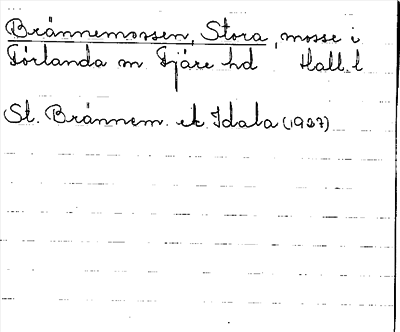 Brännemossen, Stora, mosse i
Förlanda m Fjäre hd Hall. l
St. Brännem. ek Idala (1937)